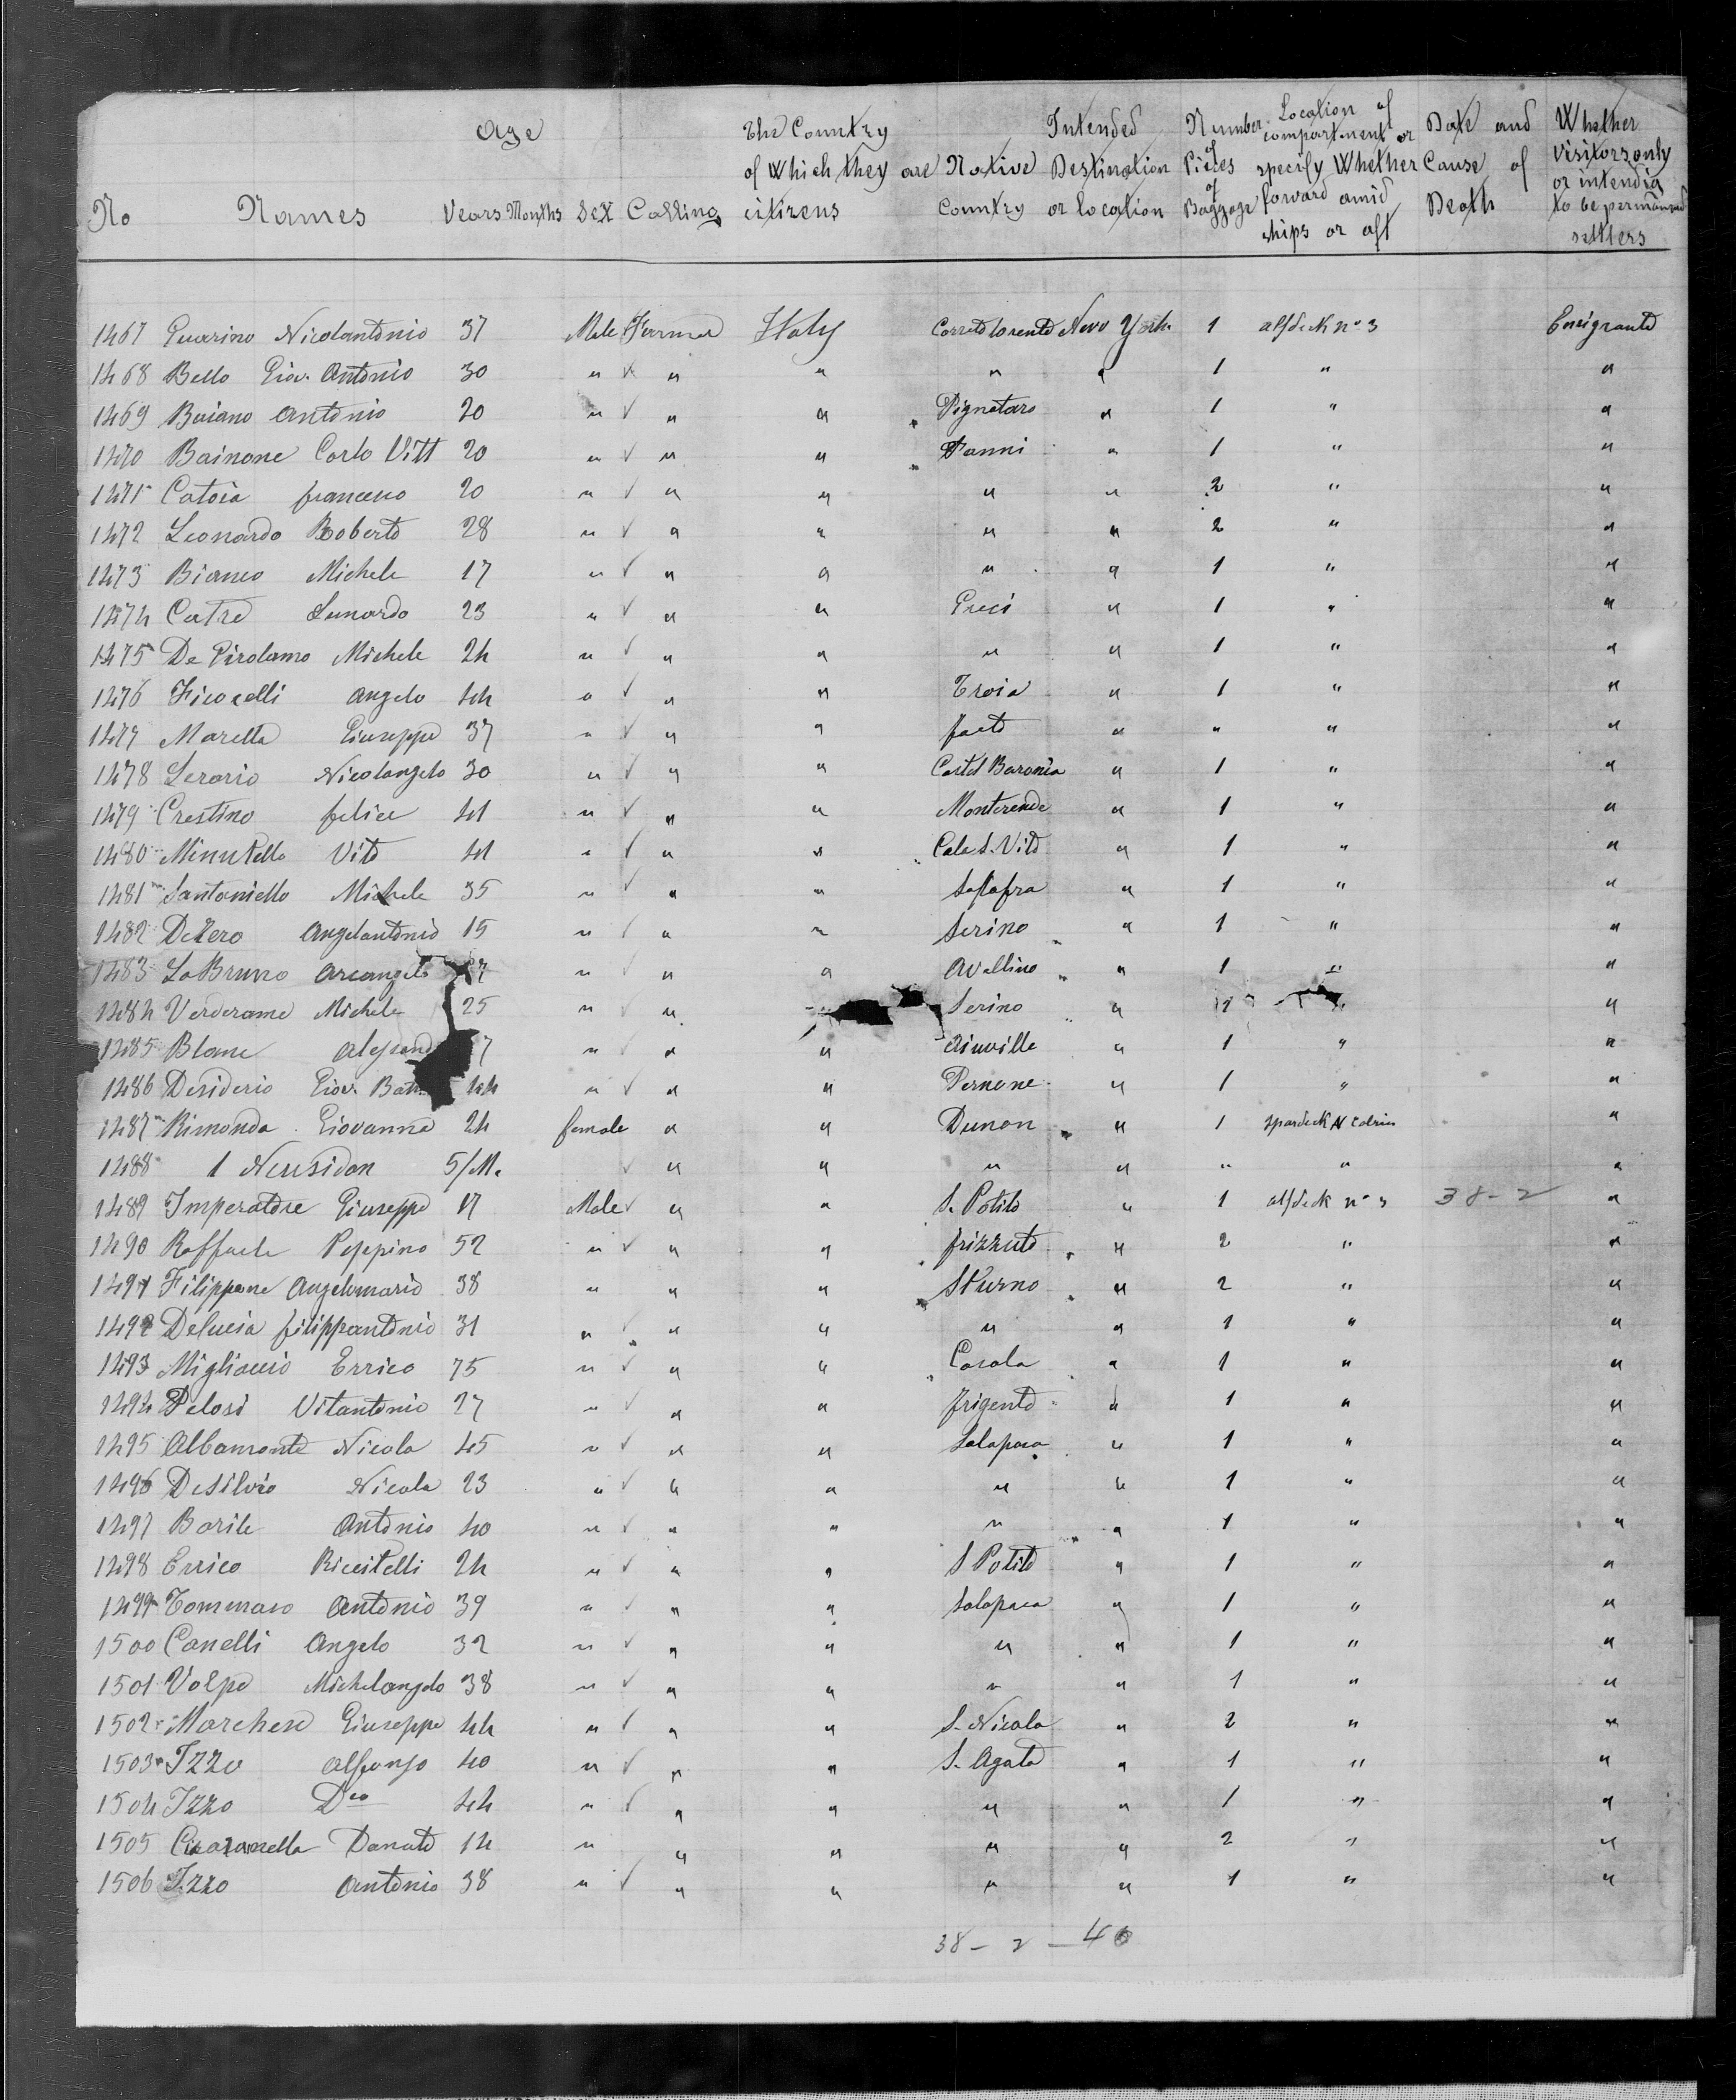 Age The Country Intended Number Location of Date and Whether
of which they are Native Destination of Pieces compartment or specify Whether Cause of Visitors only or intendig
No Names Years Months Sex Calling citizens Country or location of Baggage forward amid ships or aft Death to be permanend settlers
1467 Guarino Nicolantonio 37 Male Farmer Italy Corretto lorento New York 1 aftdeck n° 3 Emigrants
1468 Bello Giov. Antonio 30 " √ " " " " 1 " "
1469 Baiano Antonio 20 " √ " " Pignataro " 1 " "
1470 Bainone Carlo Vitt 20 " √ " " Panni " 1 " "
1471 Catoia francesco 20 " √ " " " " 2 " "
1472 Leonardo Roberto 28 " √ " " " " 2 " "
1473 Bianco Michele 17 " √ " " " " 1 " "
1474 Catre Lunardo 23 " √ " " Greci " 1 " "
1475 De Girolamo Michele 24 " √ " " " " 1 " "
1476 Ficocelli Angelo 44 " √ " " Troia " 1 " "
1477 Maretta Giuseppe 37 " √ " " faeto " " " "
1478 Lerario Nicolangelo 30 " √ " " Castel Baronia " 1 " "
1479 Crestino felice 41 " √ " " Monterende " 1 " "
1480 Minutello Vito 41 " √ " " Cala S. Vito " 1 " "
1481 Santoniello Michele 35 " √ " " Solofra " 1 " "
1482 DeZero Angelantonio 15 " √ " " Serino " 1 " "
1483 LoBruno Arcangelo " √ " " Avellino " 1 " "
1484 Verderame Michele 25 " √ " Serino " " "
1485 Blanc Alesand 7 " √ " " Ainville " 1 " "
1486 Desiderio Giov. Batt 44 " √ " " Pernone " 1 " "
1487 Rimonda Giovanna 24 female " " Dunon " 1 spardeck N cabin "
1488 1 Neusidon 5/M. √ " " " " " " "
1489 Imperatore Giuseppe 17 Male √ " " S. Potito " 1 aftdeck n° 3 38-2 "
1490 Raffaele Peppino 52 " √ " " frizzuto " 2 " "
1491 Filippone Angelomario 38 " " " Sturno " 2 " "
1492 Delucia filippantonio 31 " √ " " " " 1 " "
1493 Migliaccio Errico 75 " √ " " Casola " 1 " "
1494 Pelosi Vitantonio 27 " √ " " frigento " 1 " "
1495 Albamonte Nicola 45 " √ " " Solapaca " 1 " "
1496 Desilvio Nicola 23 " √ " " " " 1 " "
1497 Barile Antonio 40 " √ " " " " 1 " "
1498 Errico Riccitelli 24 " √ " " S Potito " 1 " "
1499 Tommaso Antonio 39 " √ " " Solopaca " 1 " "
1500 Canelli Angelo 32 " √ " " " " 1 " "
1501 Volpe Michelangelo 38 " √ " " " " 1 " "
1502 Marchese Giuseppe 44 " √ " " S. Nicola " 2 " "
1503 Izzo Alfonso 40 " √ " " S. Agata " 1 " "
1504 Izzo Dco 44 " √ " " " " 1 " "
1505 Donato 14 " " " " " 2 " "
1506 Izzo Antonio 38 " √ " " " " 1 " "
38 - 2 - 40